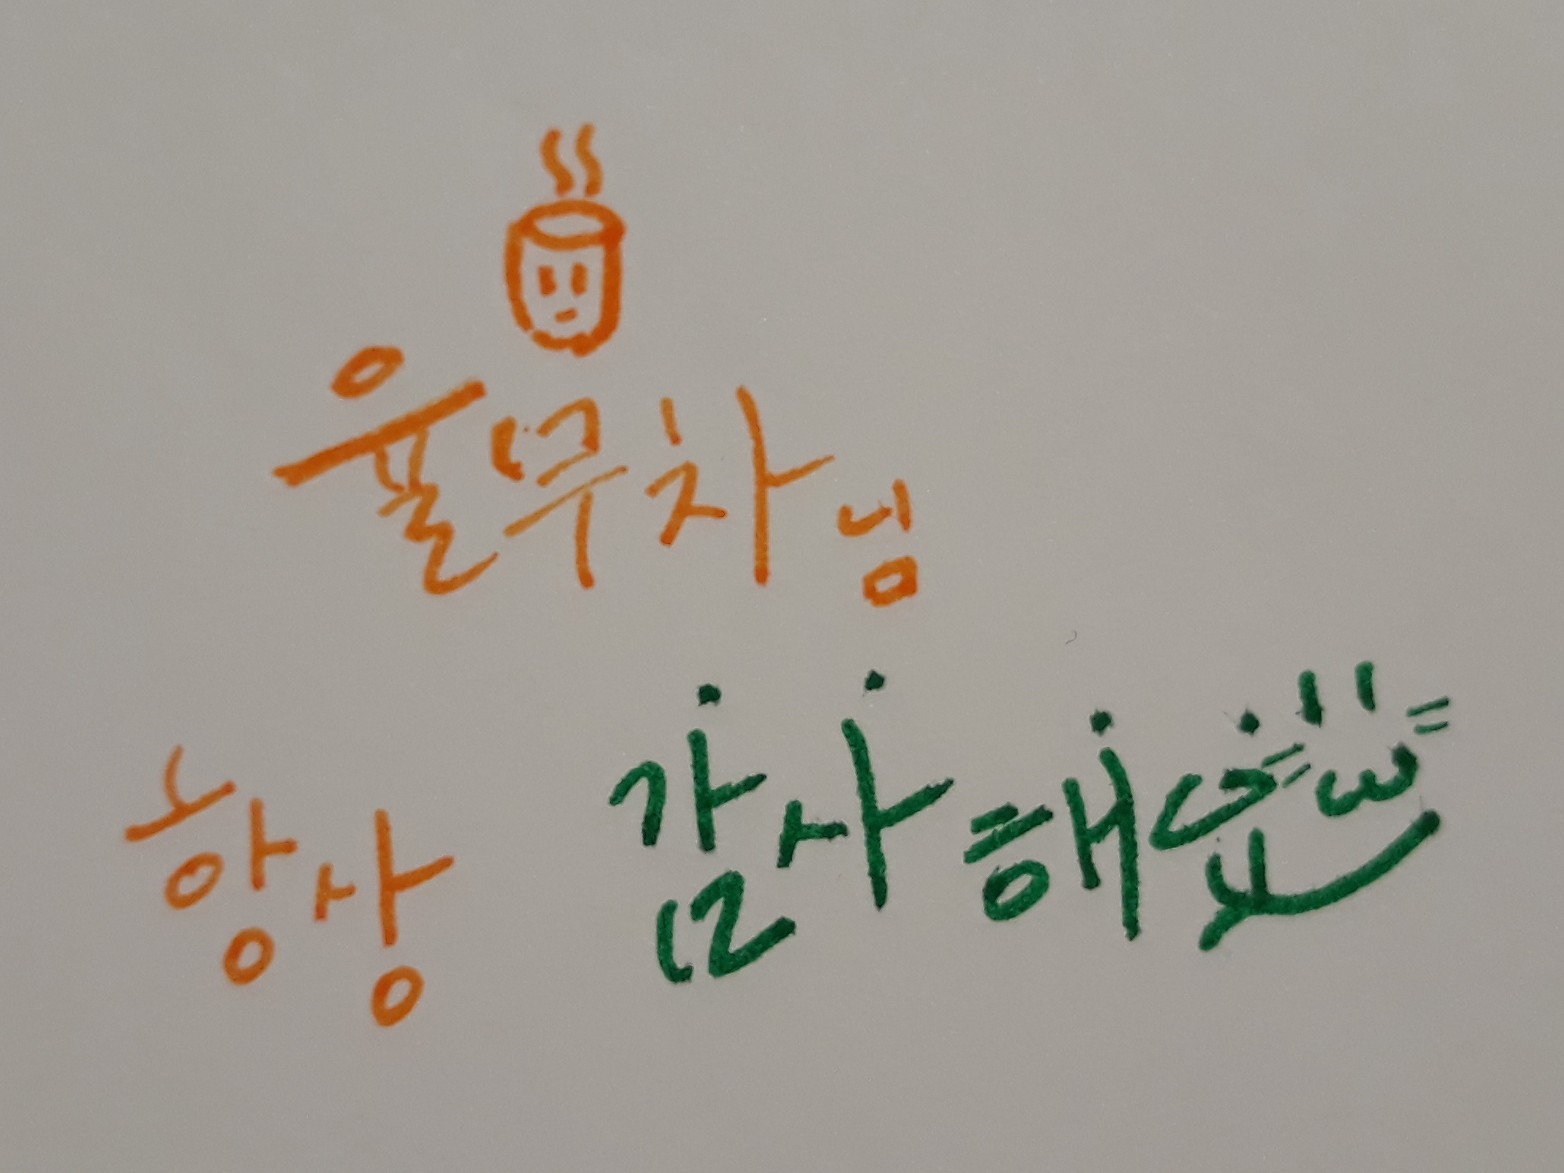 율무차님
항상 감사해요